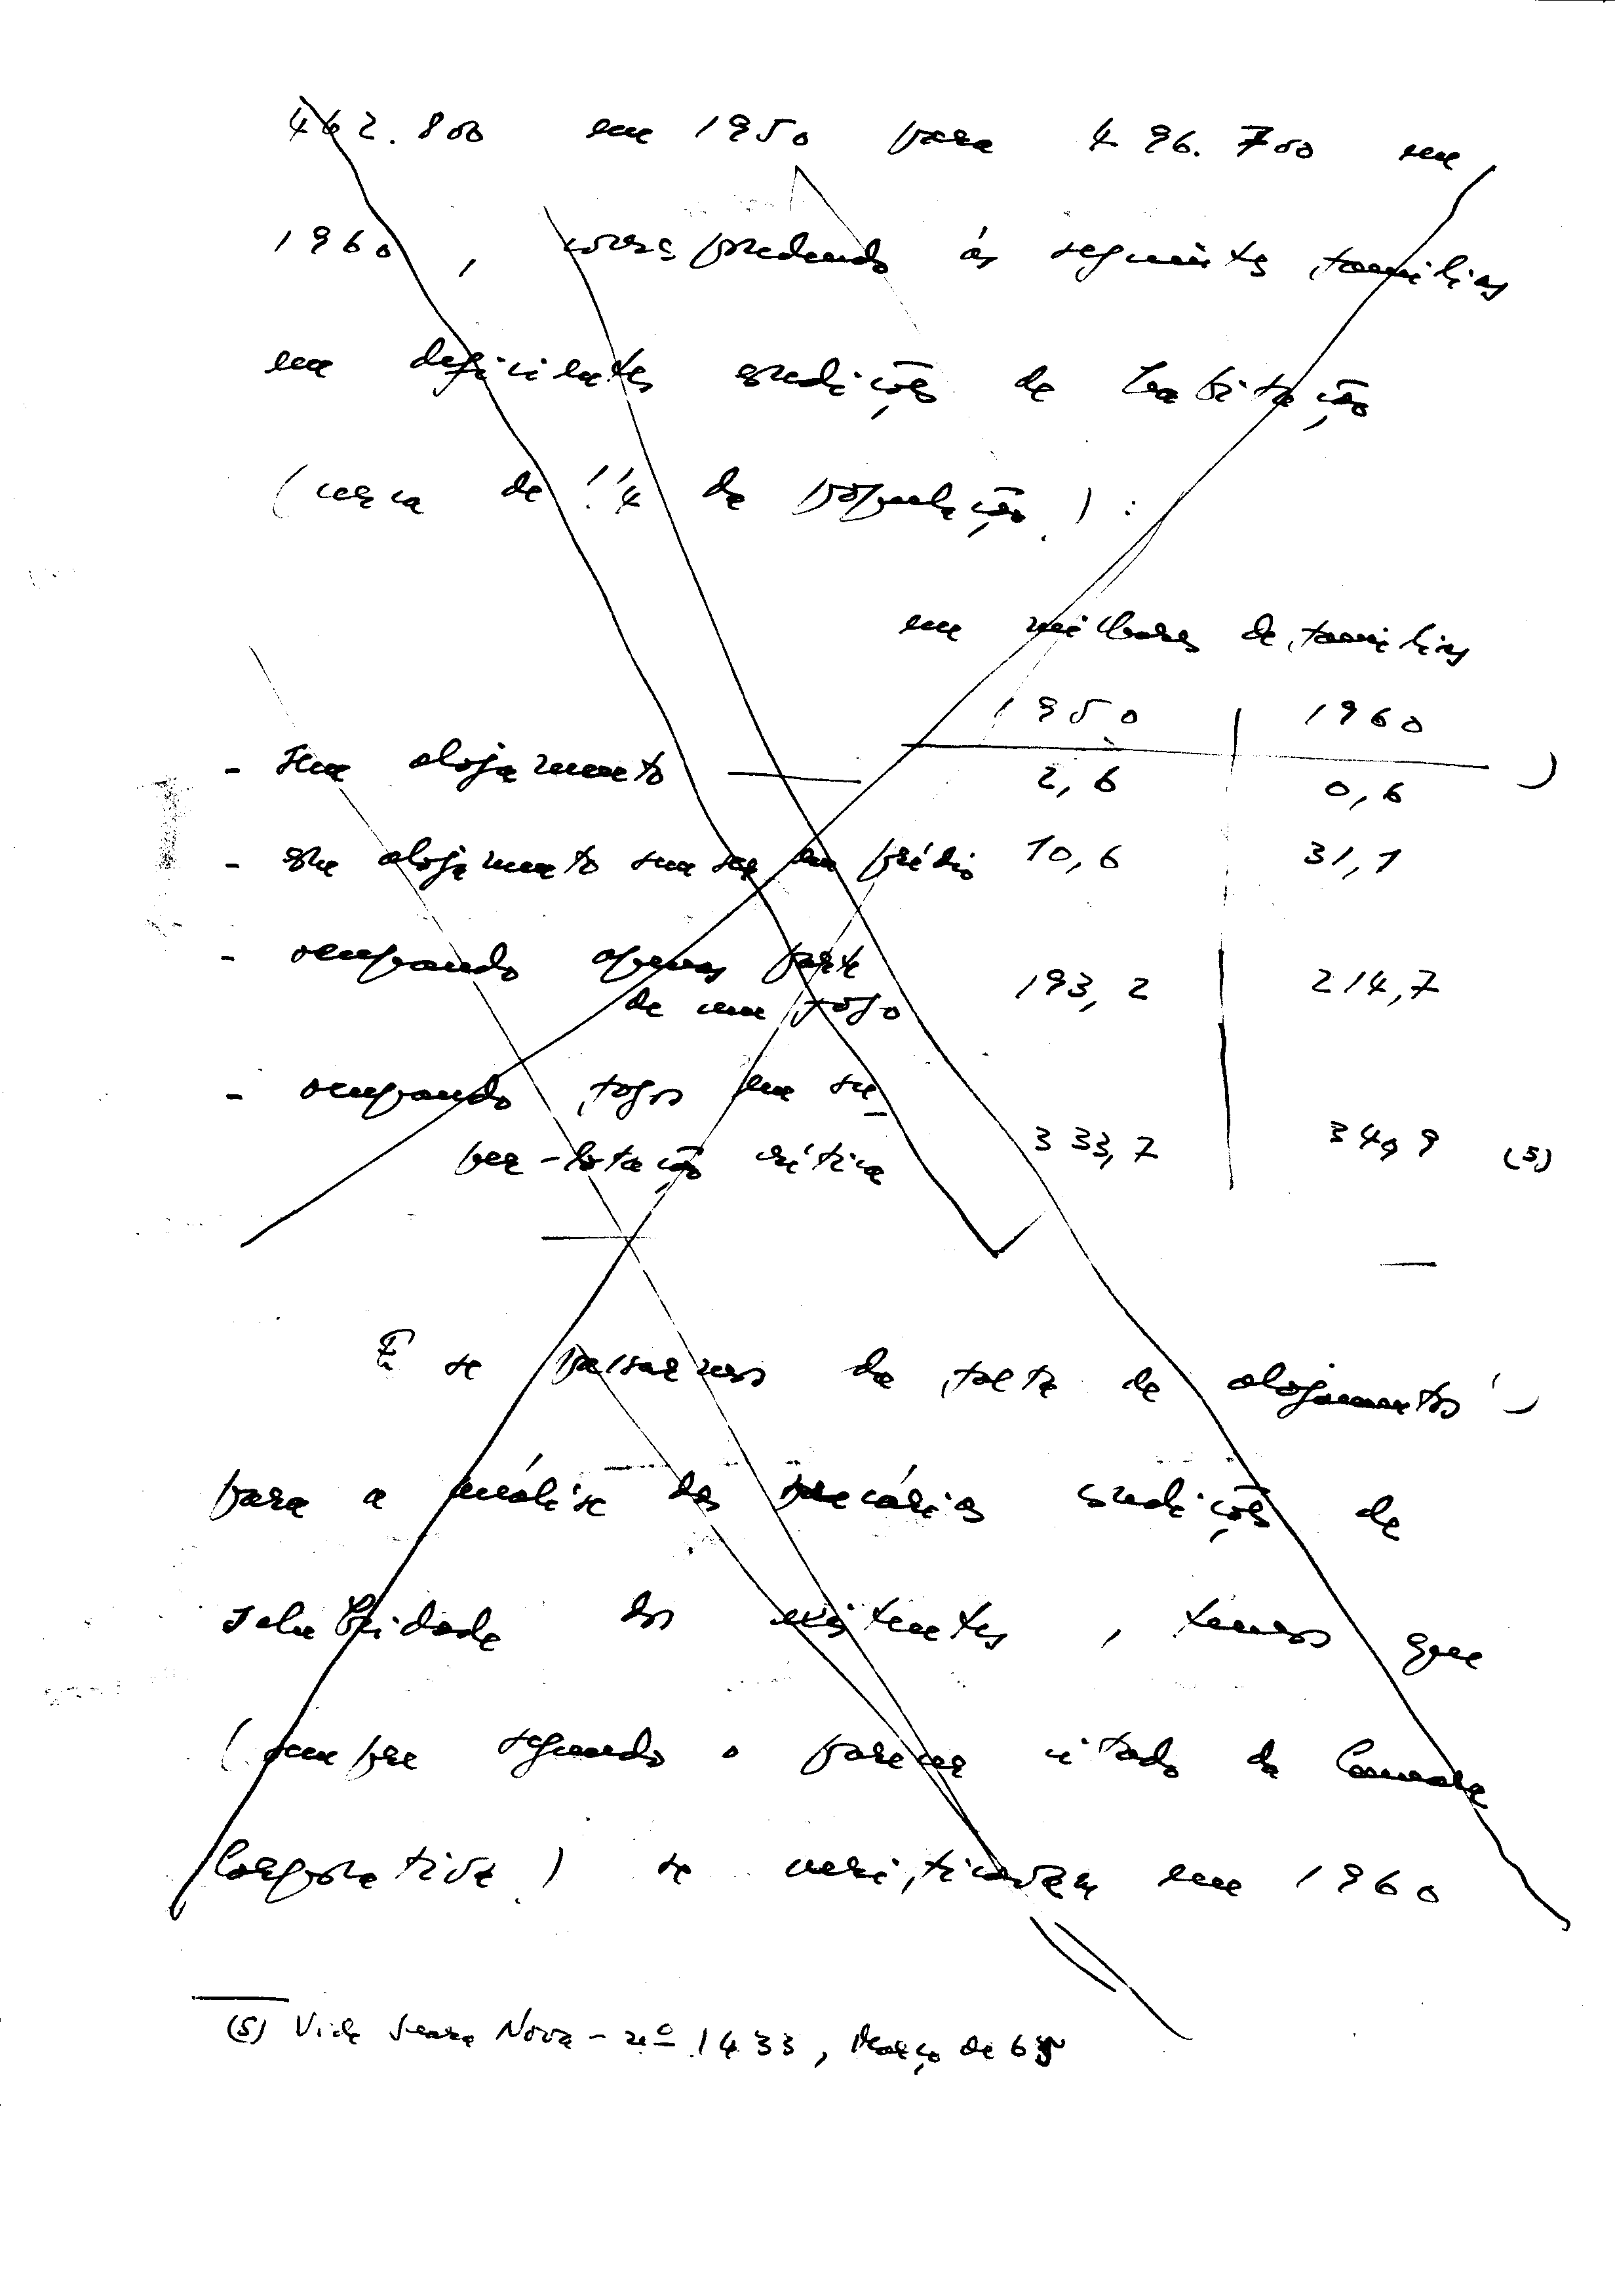 462.800 em 1950 para 496.700 em
1960, correspondendo às seguintes familias
em deficientes condições de habitação
(cerca de 1/4 da população):
em milhares de familias
1950 | 1960
- sem alojamento — 2,6 0,6
- em alojamento sem ser em prédio 10,6 31,1
- ocupando apenas parte
de um fogo 193,2 214,7
- ocupando fogos em su-
per-lotação crítica 333,7 340,9 (5)
E se passarmos da falta de alojamentos
para a análise das precárias condições de
salubridade dos existentes, temos que
(sempre segundo o parecer citado da Camara
Corporativa) se verificavam em 1960
(5) Vide Seara Nova - nº 1433, Março de 65